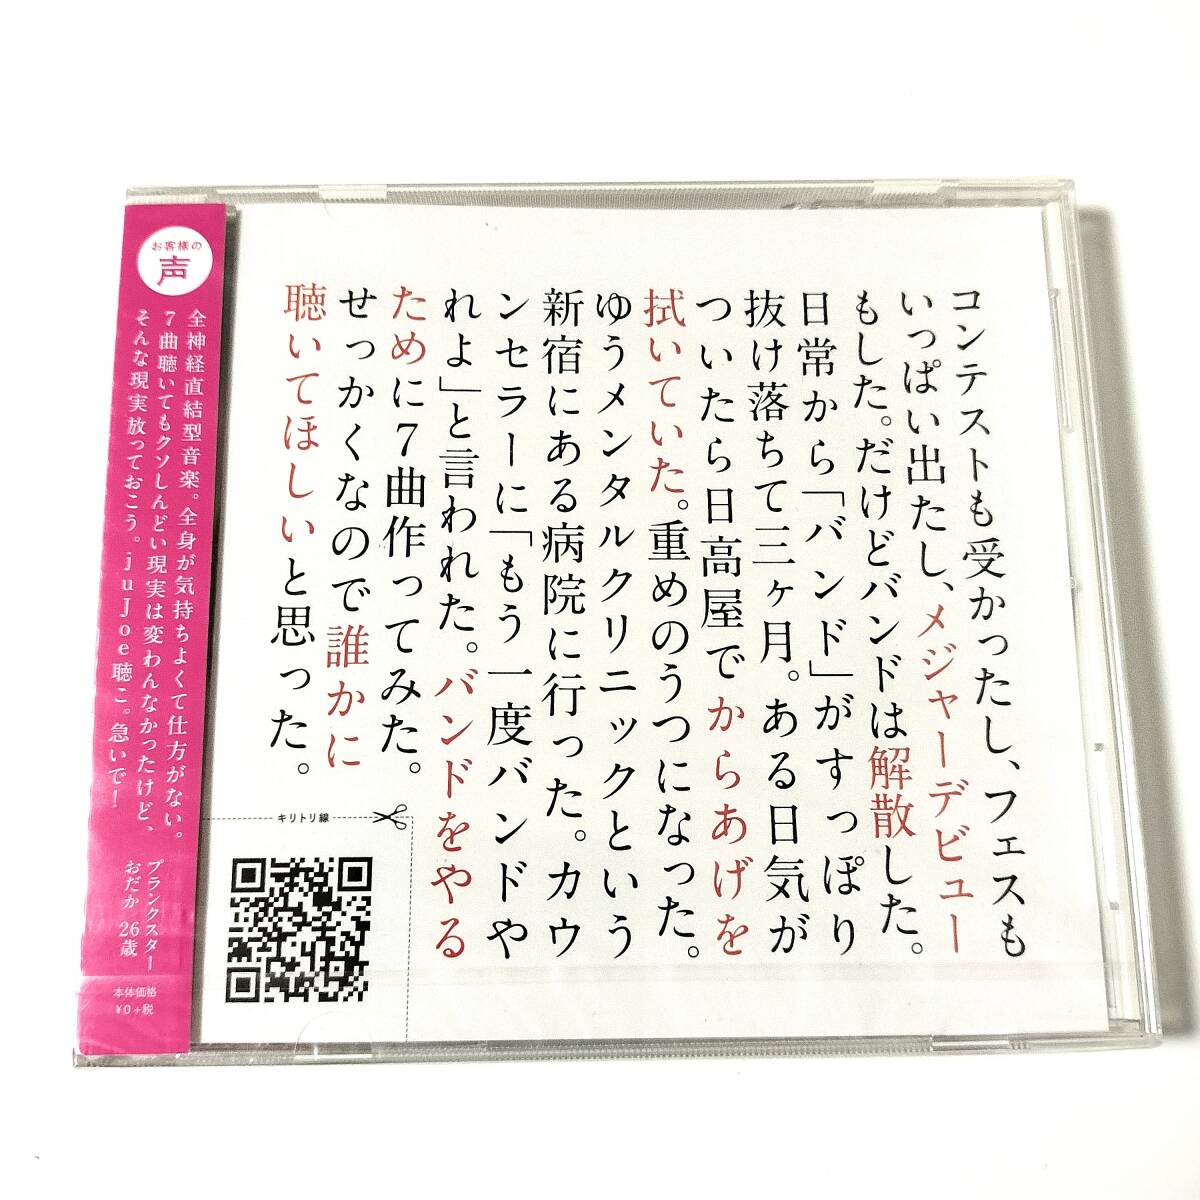 コンテストも受かったし、フェスも
いっぱい出たし、メジャーデビュー
もした。だけどバンドは解散した。
日常から「バンド」がすっぽり
抜け落ちて三ヶ月。ある日気が
ついたら日高屋でからあげを
拭いていた。重めのうつになった。
ゆうメンタルクリニックという
新宿にある病院に行った。カウ
ンセラーに「もう一度バンドや
れよ」と言われた。バンドをやる
ために7曲作ってみた。
せっかくなので誰かに
聴いてほしいと思った。
キリトリ線
お客様の
声
全神経直結型音楽。全身が気持ちよくて仕方がない。
7曲聴いてもクソしんどい現実は変わんなかったけど、
そんな現実放っておこう。juJoe聴こ。急いで!
プランクスター
おだか 26歳
本体価格
¥0+税